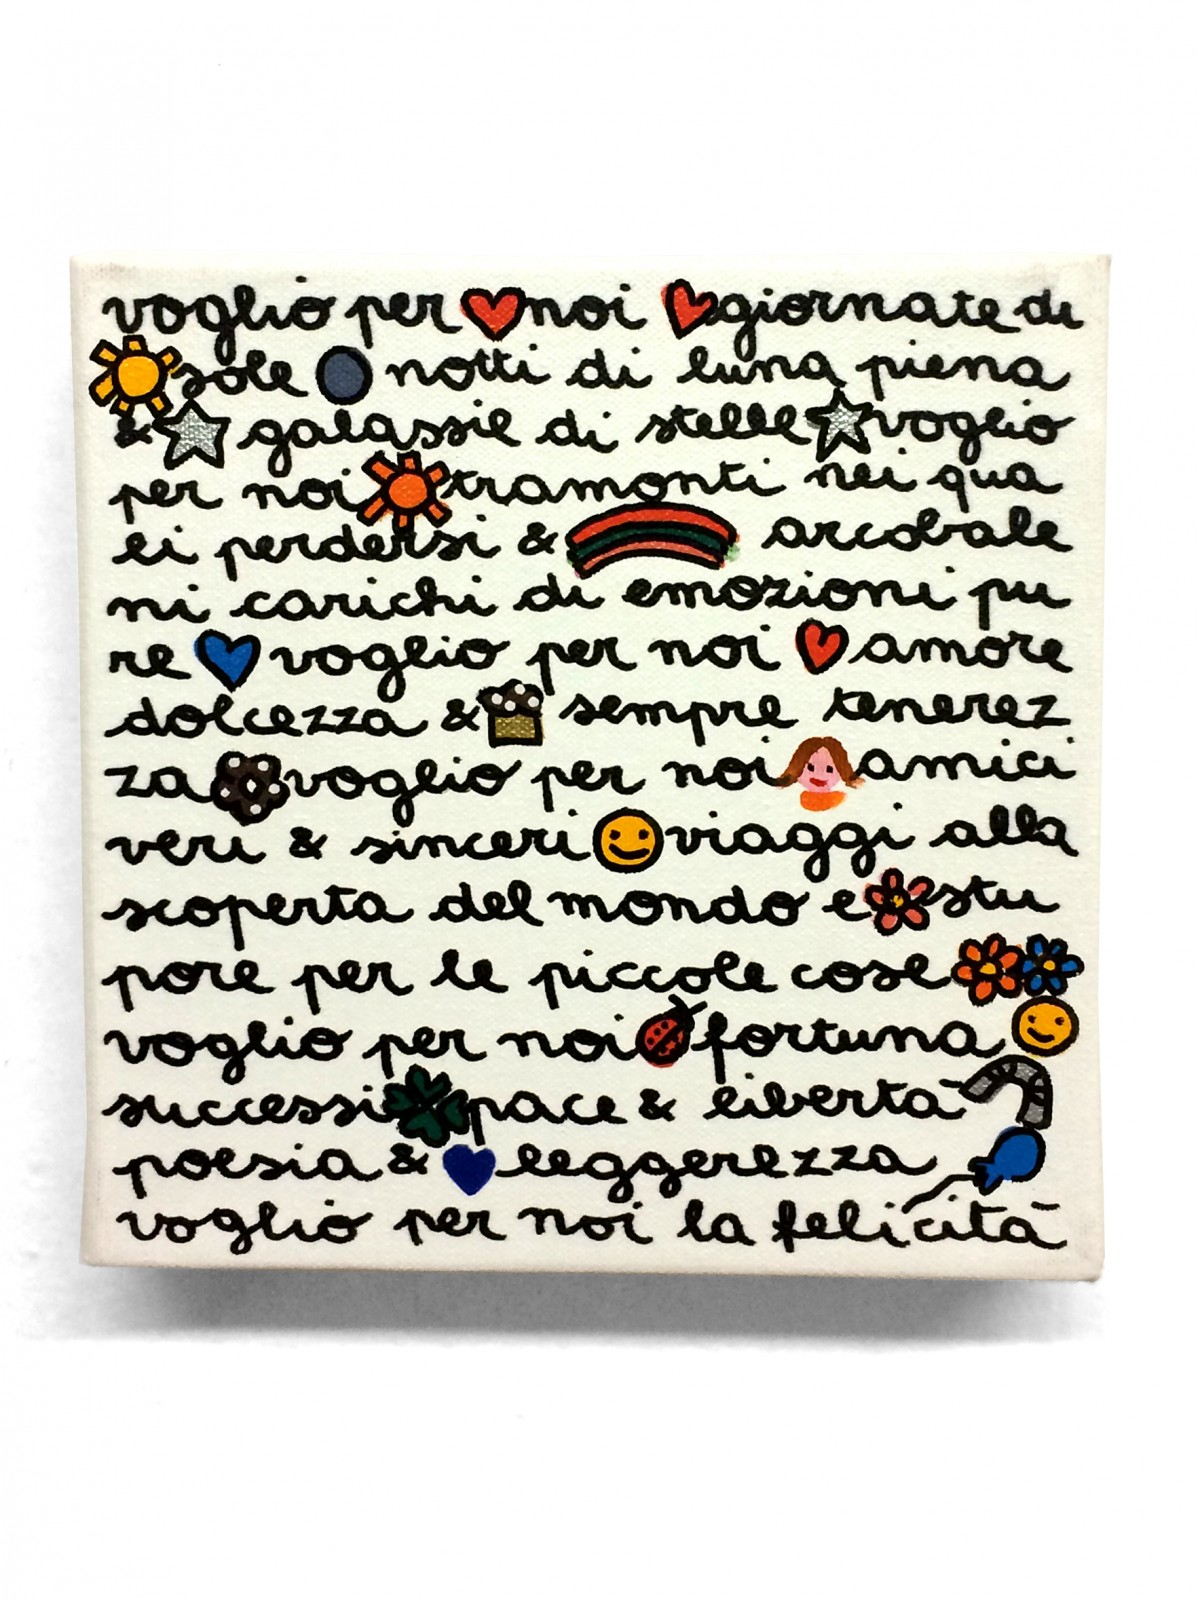 voglio per noi giornate di
sole notti di luna piena
& galassie di stelle voglio
per noi tramonti nei qua
li perdersi & arcobale
ni carichi di emozioni pu
re voglio per noi amore
dolcezza & sempre tenerez
za voglio per noi amici
veri & sinceri viaggi alla
scoperta del mondo e stu
pore per le piccole cose
voglio per noi fortuna
successi pace & libertà
poesia & leggerezza
voglio per noi la felicità